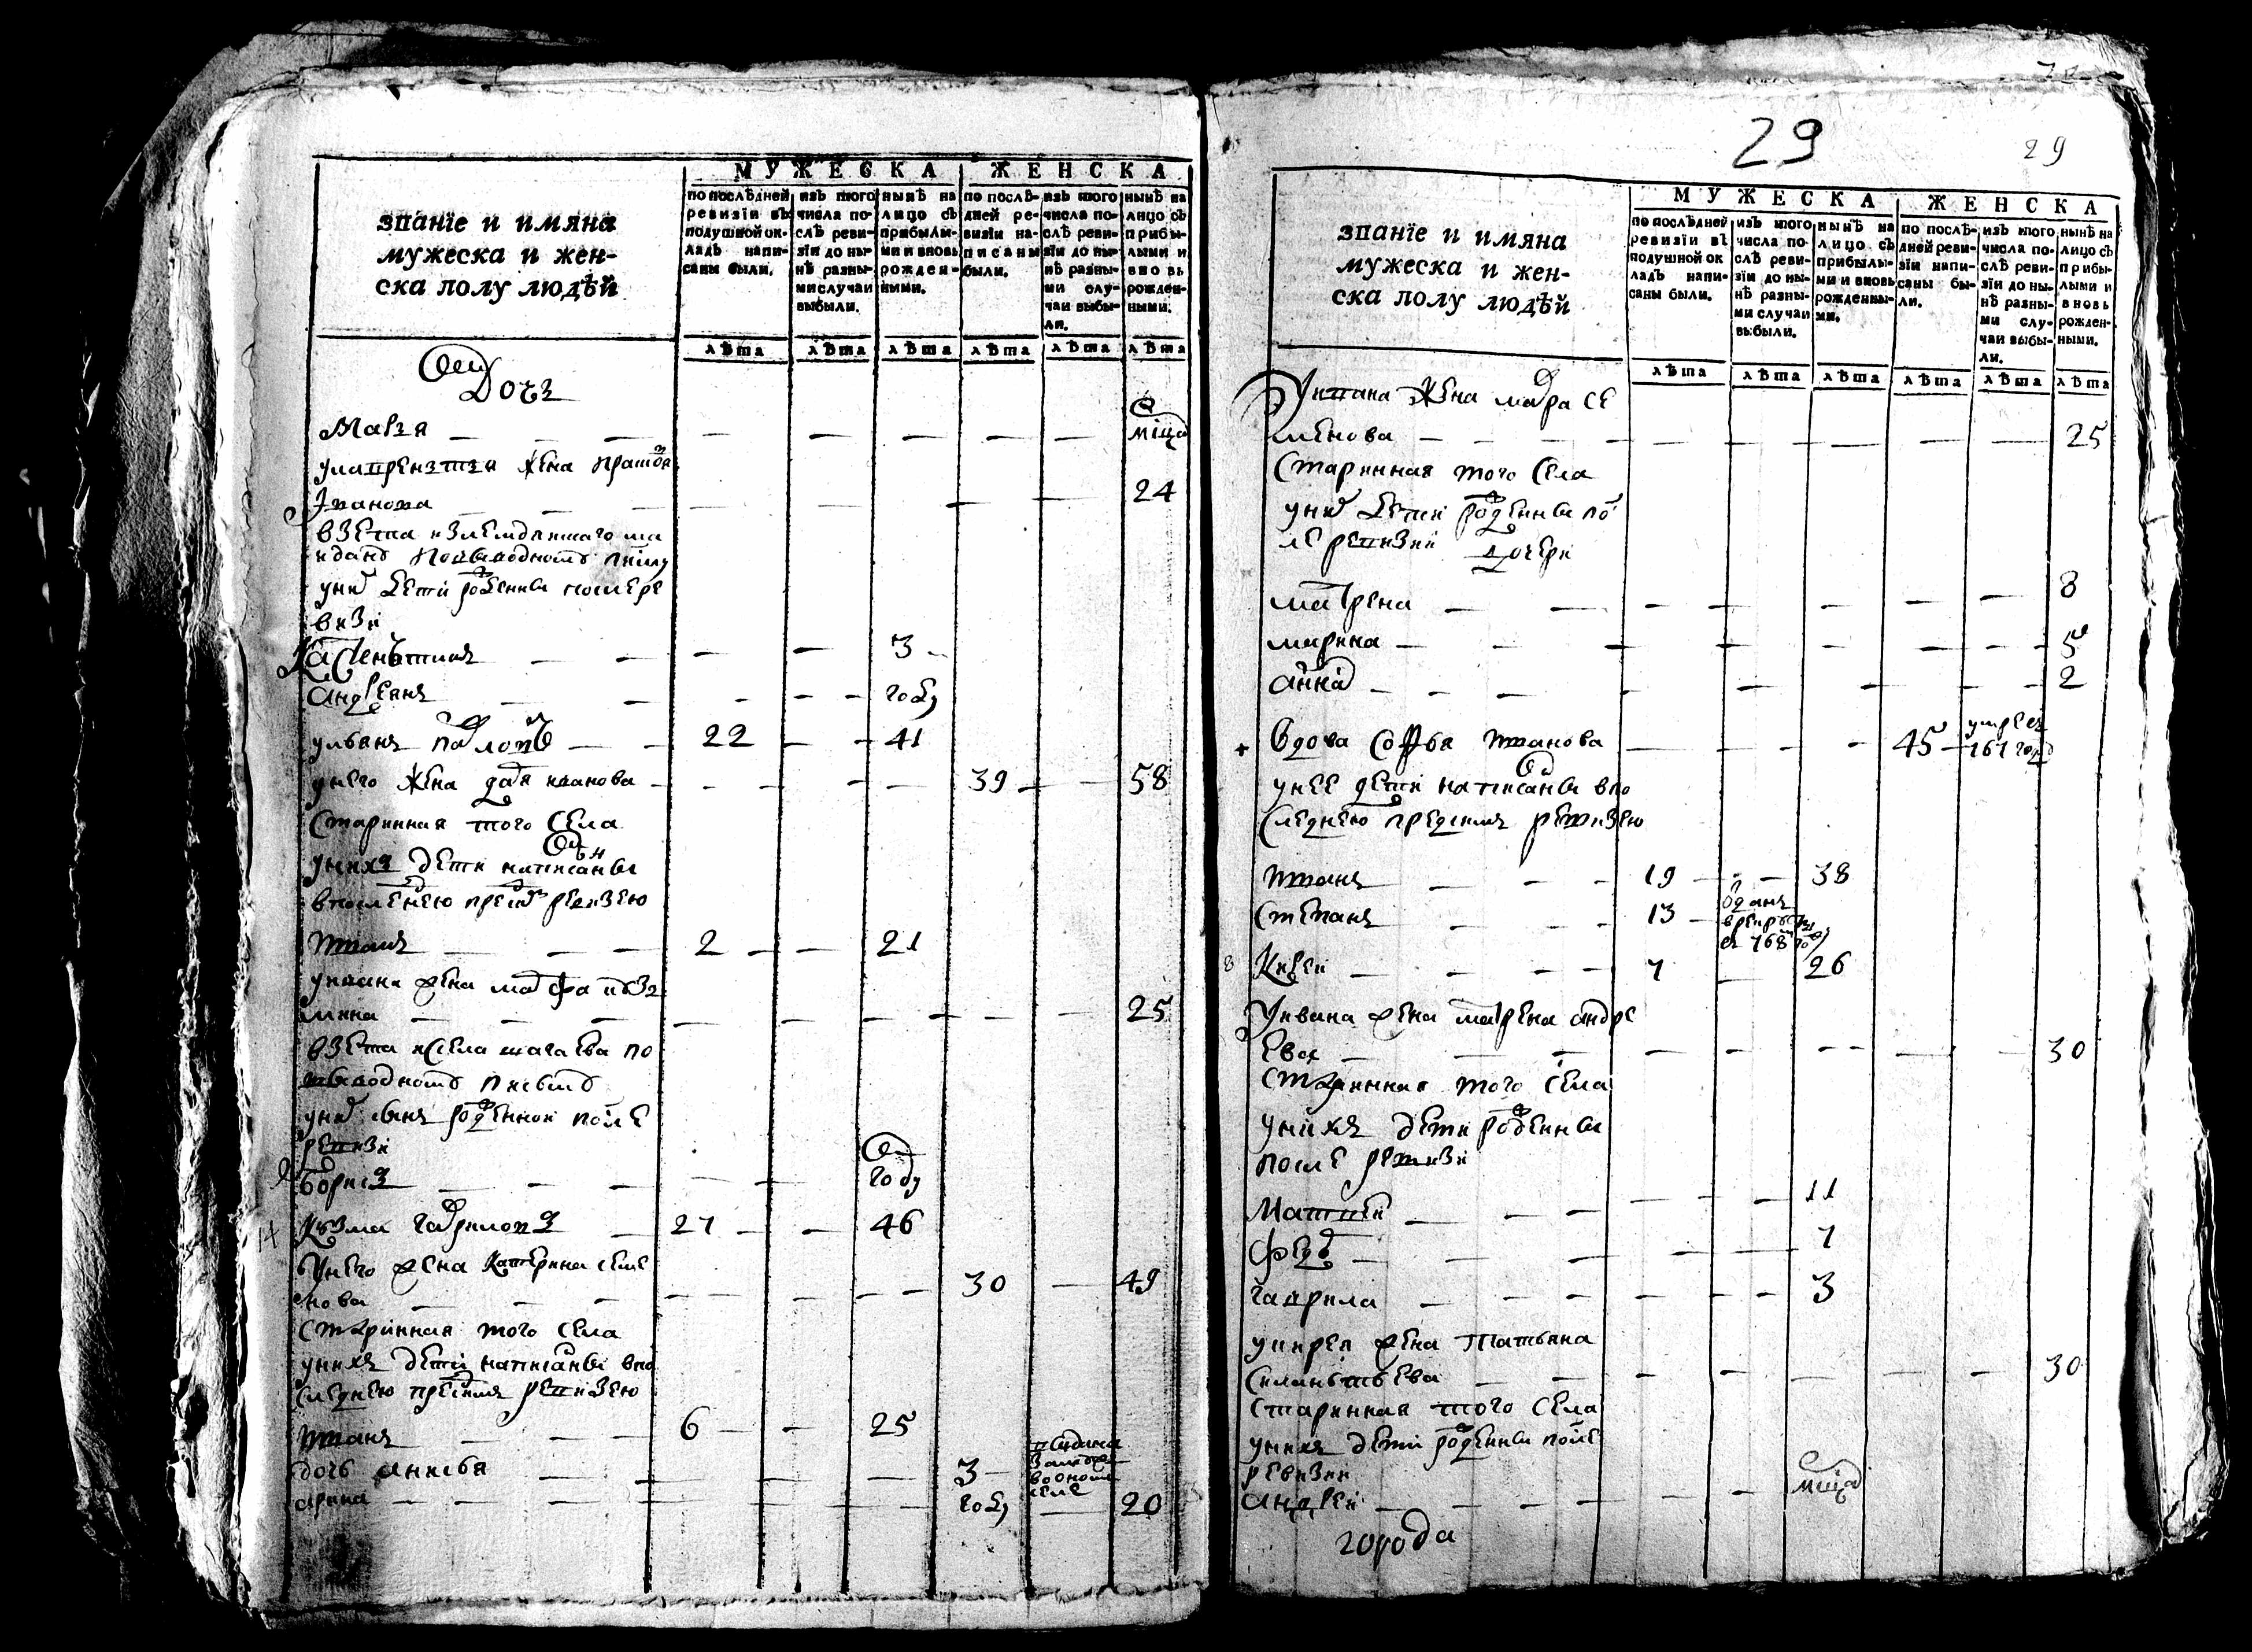 МУЖЕСКА ЖЕНСКА
званїе и имяна
мужеска и жен-
ска полу людѣй
по послѣдней
ревизїи въ
подушной ок-
ладъ напи-
саны были.
изъ того
числа по-
слѣ реви-
зїи до ны-
нѣ разны-
ми случаи
выбыли.
нынѣ на
лицо съ
прибылы-
ми и вновь
рожден-
ными.
по послѣ-
дней ре-
визїи на-
писаны
были.
изъ того
числа по-
слѣ реви-
зїи до ны-
нѣ разны-
ми слу-
чаи выбы-
ли.
нынѣ на
лицо съ
прибы-
лыми и
вновь
рожден-
ными.
лѣта лѣта лѣта лѣта лѣта лѣта
Дочь
Мавра — мѣца
жена
Иванова — 24
взета
у них дети рожденныя после ре
визи
Каленътии — 3
Андреянъ — году
ульянъ павловъ — 22 — 41
у него жена дарья иванова — 39 — 58
Старинная того села
у нихъ дети написанны
в последнею пред сим ревизею
Иванъ — 2 — 21
у ивана жена марфа кузь
мина — 25
взета ис села шагаева по
выводному писму
у них сынъ рожденной после
ревизи
борисъ — году
14 Кузма гавриловъ 27 — 46
У него жена Катерина семе
нова — 30 — 49
Старинная того села
у нихъ дети написанны в по
следнею пред симъ ревизею
Иванъ — 6 — 25
дочь анисья — 3 — выдана
замужъ
во оном
селе
арина — году — 20
29
29
МУЖЕСКА ЖЕНСКА
званїе и имяна
мужеска и жен-
ска полу людѣй
по послѣдней
ревизїи въ
подушной ок
ладъ напи-
саны были.
изъ того
числа по-
слѣ реви-
зїи до ны-
нѣ разны-
ми случаи
выбыли.
нынѣ на
лицо съ
прибылы-
ми и вновь
рожденны-
ми.
по послѣ-
дней реви-
зїи напи-
саны бы-
ли.
изъ того
числа по-
слѣ реви-
зїи до ны-
нѣ разны-
ми слу-
чаи выбы-
ли.
нынѣ на
лицо съ
прибы-
лыми и
вновь
рожден-
ными.
лѣта лѣта лѣта лѣта лѣта лѣта
У ивана жена марья се
менова — 25
Старинная того села
у них дети рожденны по
сле ревизии дочери
матрена — 8
марина — 5
анна — 2
вдова софья иванова — 45 — умре в
761 году
у нее дети написанны в по
следнею пред симъ ревизею
Иванъ — 19 — 38
Степанъ — 13 — отданъ
в рекруты
в 768 году
Кирей — 7 — 26
У ивана жена матрена андре
ева — 30
Старинная того села
у нихъ дети рожденны
после ревизи
Матвей — 11
федор — 7
гаврила — 3
у кирея жена татьяна
силантьева — 30
Старинная того села
у нихъ дети рожденны после
ревизии
андрей — мѣца
города